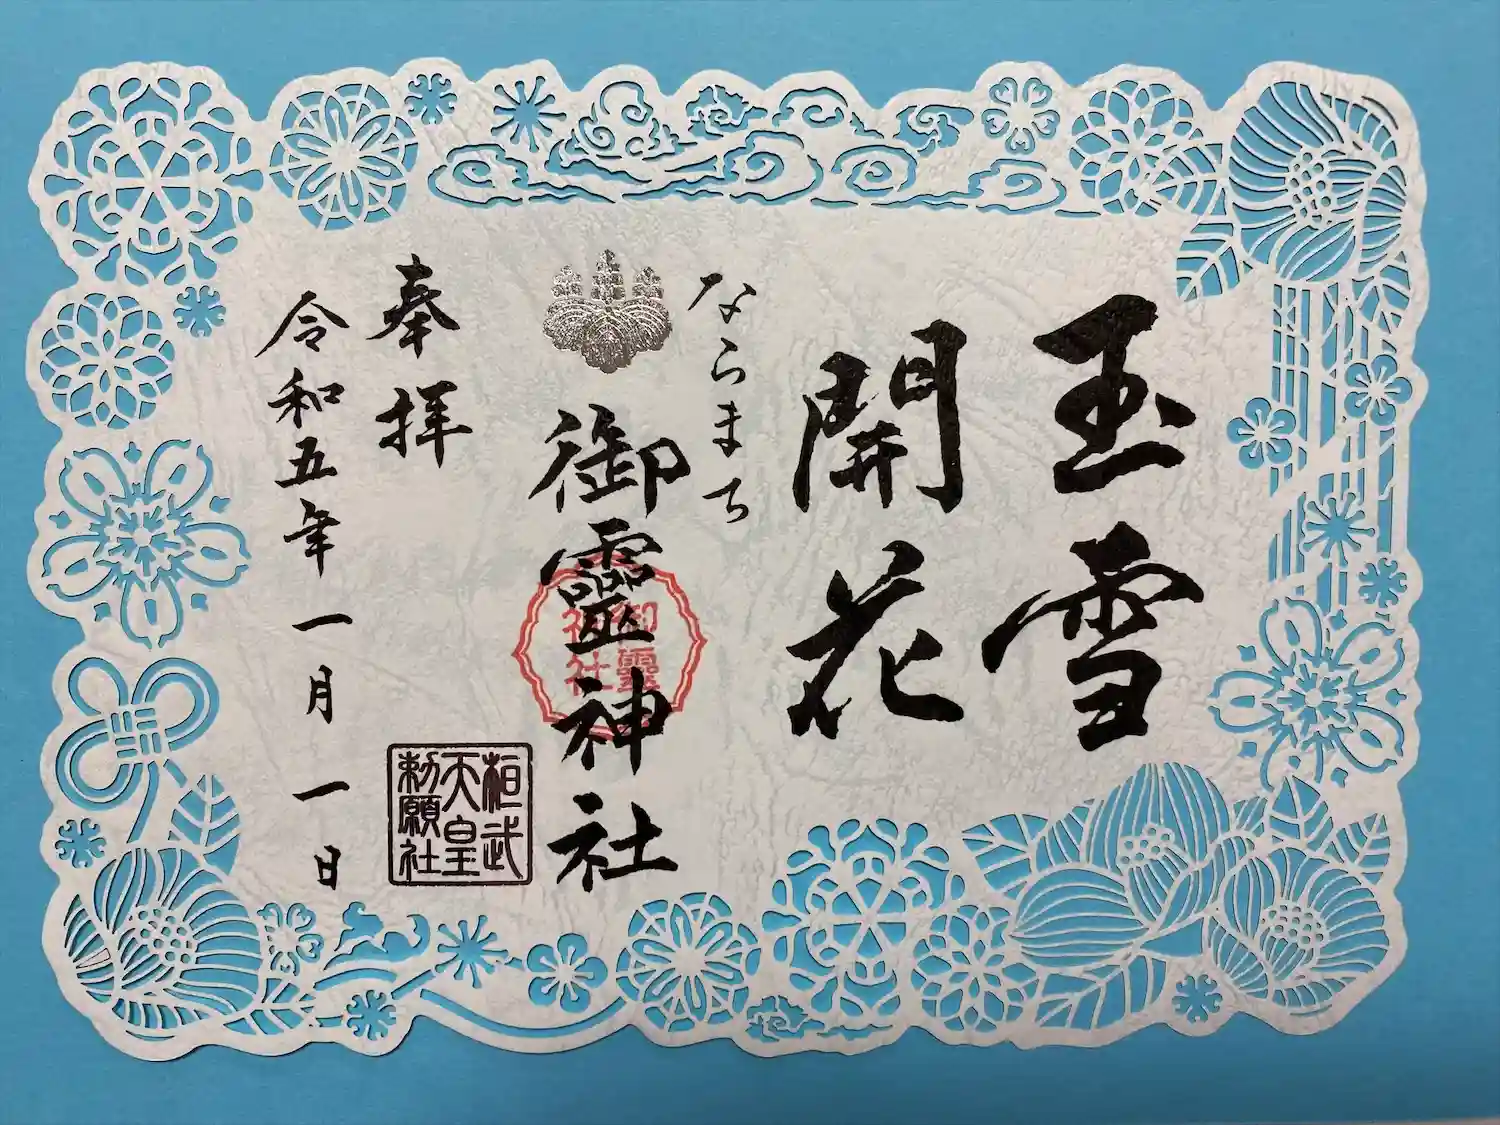 玉雪
開花
ならまち
御靈神社
御靈
神社
桓武
天皇
勅願社
奉拝
令和五年一月一日